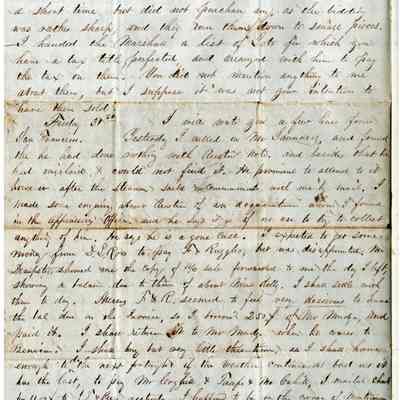 a short time, but did not purchase any, as the bidding
was rather sharp and they run them down to small prices.
I handed the Marshall a list of Lots for which you
have a tax title perfected and arranged with him to pay
the tax on them. You did not mention anything to me
about them, but I suppose it was not your intention to
have them sold.
Friday 31st I will write you a few lines from
San Francisco. Yesterday I called on Mr January, and found
he had done nothing with Austin note, and besides that he
had mislaid & could not find it. He promised to attend to it
however after the Steamer sails & communicate with me by mail. I
made some enquiry about Austin of an acquaintance whom I found
in the appraisers Office, and he says it is of no use to try to collect
anything of him. He says he is a gone case. I expected to get some
money from to pay F & Ruggles, but was disappointed, Mr
seemed was the copy of sale forwarded to me the day I left,
showing a balance due to them of about nine dolls. I shall settle with
them to day. Messrs F & R. seemed to feel very desirous to have
the bal due on the Invoice, so I borrowed 250 $ of Mr and
paid it. I shall return it to Mr when he comes to
Benicia. I shall buy but very little this time, as I shall have
enough to the next fortnight if the weather continues as bad as it
has the last, to pay Mr & & Mr Cahill. I
to yesterday. I happened to be on the corner of Montgomery